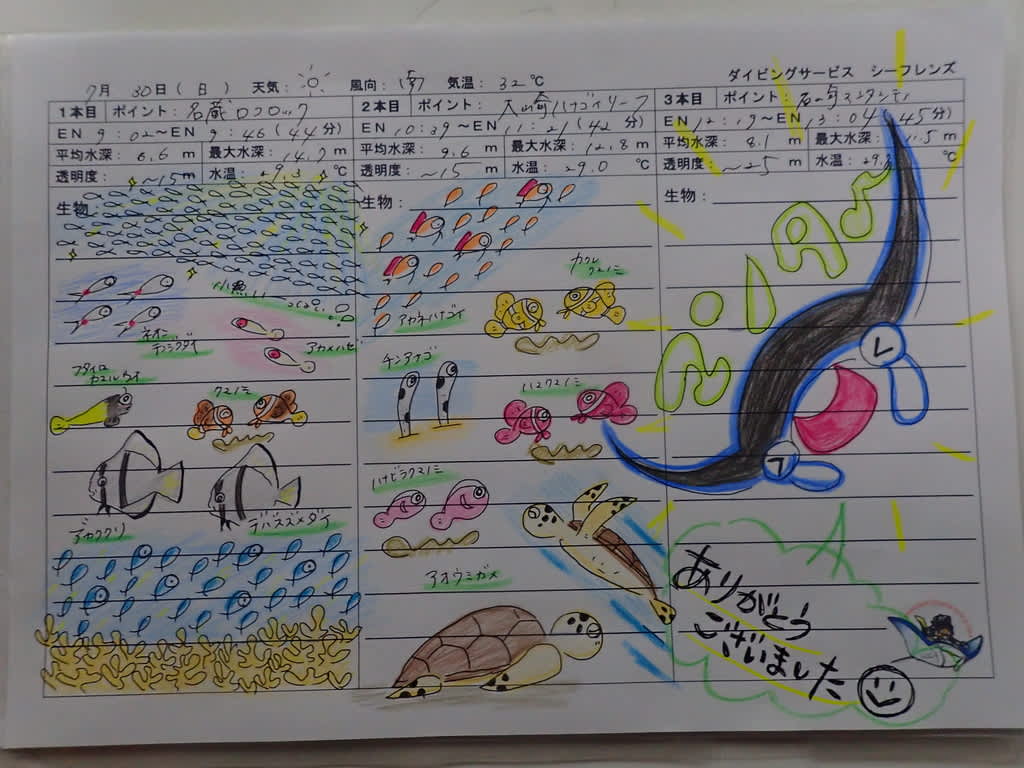 ダイビングサービス シーフレンズ
7月 30日(日) 天気: 風向: 南 気温: 32℃
1本目 ポイント: 名蔵ロクロック
EN 9:02~EN 9:46(44分)
平均水深: 6.6 m 最大水深: 14.7 m
透明度: ~15m 水温: 29.3 ℃
生物:
小魚
いっぱい
ネオン
テンジクダイ
アカメハゼ
フタイロ
カエルウオ
クマノミ
デバスズメダイ
2本目 ポイント: 大崎ハナゴイリーフ
EN 10:39~EN 11:21(42分)
平均水深: 9.6 m 最大水深: 12.8 m
透明度: ~15 m 水温: 29.0 ℃
生物:
カクレ
クマノミ
アカネハナゴイ
チンアナゴ
ハマクマノミ
ハナビラクマノミ
アオウミガメ
3本目 ポイント: 石崎マンタシティ
EN 12:19~EN 13:04(45分)
平均水深: 8.1 m 最大水深: 11.5 m
透明度: ~25 m 水温: 29.3 ℃
生物:
マンタ
ありがとう
ございました